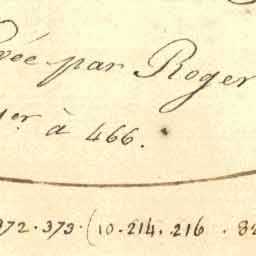 vée par Roger
1er. à 466.
372.373.(10.214.216.82